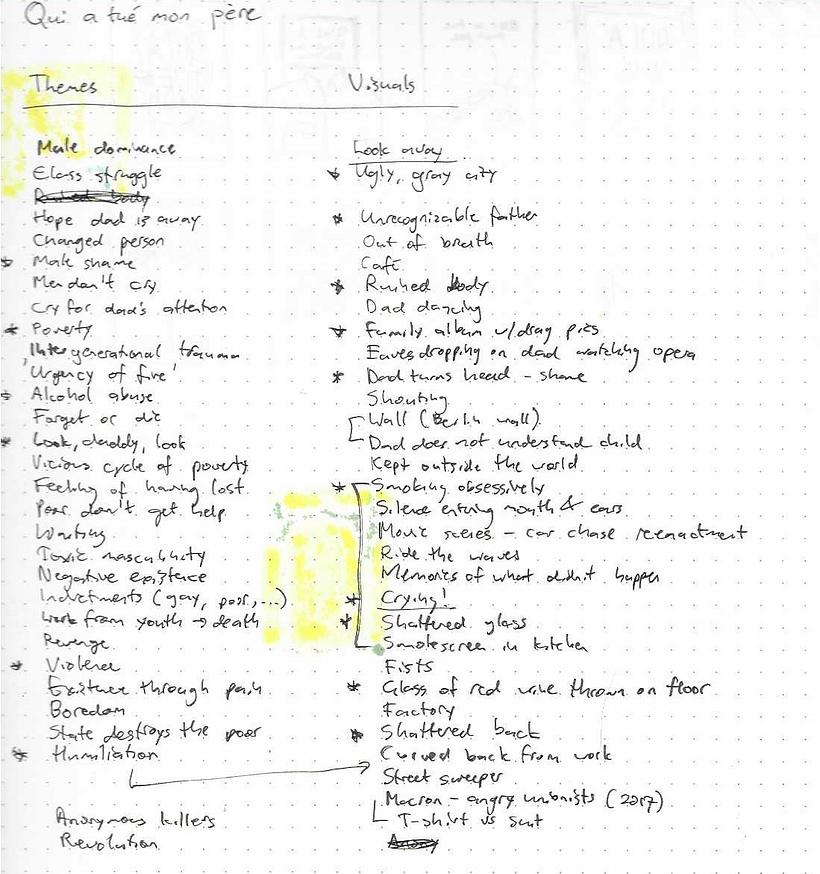 Qui a tué mon père
Themes
Male dominance
Class struggle
Ruined body
Hope dad is away
Changed person
Male shame
Men don't cry
Cry for dad's attention
Poverty
Intergenerational trauma
'Urgency of fire'
Alcohol abuse
Forget or die
Look, daddy, look
Vicious cycle of poverty
Feeling of having lost
Poor don't get help
Waiting
Toxic masculinity
Negative existence
Indictments (gay, poor, ...)
Work from youth → death
Revenge
Violence
Existence through pain
Boredom
State destroys the poor
Humiliation
Anonymous killers
Revolution
Visuals
Look away
Ugly, gray city
Unrecognizable father
Out of breath
Café
Ruined body
Dad dancing
Family album w/drag pics
Eavesdropping on dad watching opera
Dad turns head - shame
Shouting
Wall (Berlin wall)
Dad does not understand child
Kept outside the world
Smoking obsessively
Silence entering mouth & ears
Movie scenes - car chase reenactment
Ride the waves
Memories of what didn't happen
Crying!
Shattered glass
Smokescreen in kitchen
Fists
Glass of red wine thrown on floor
Factory
Shattered back
Curved back from work
Street sweeper
Macron - angry unionists (2017)
T-shirt vs suit